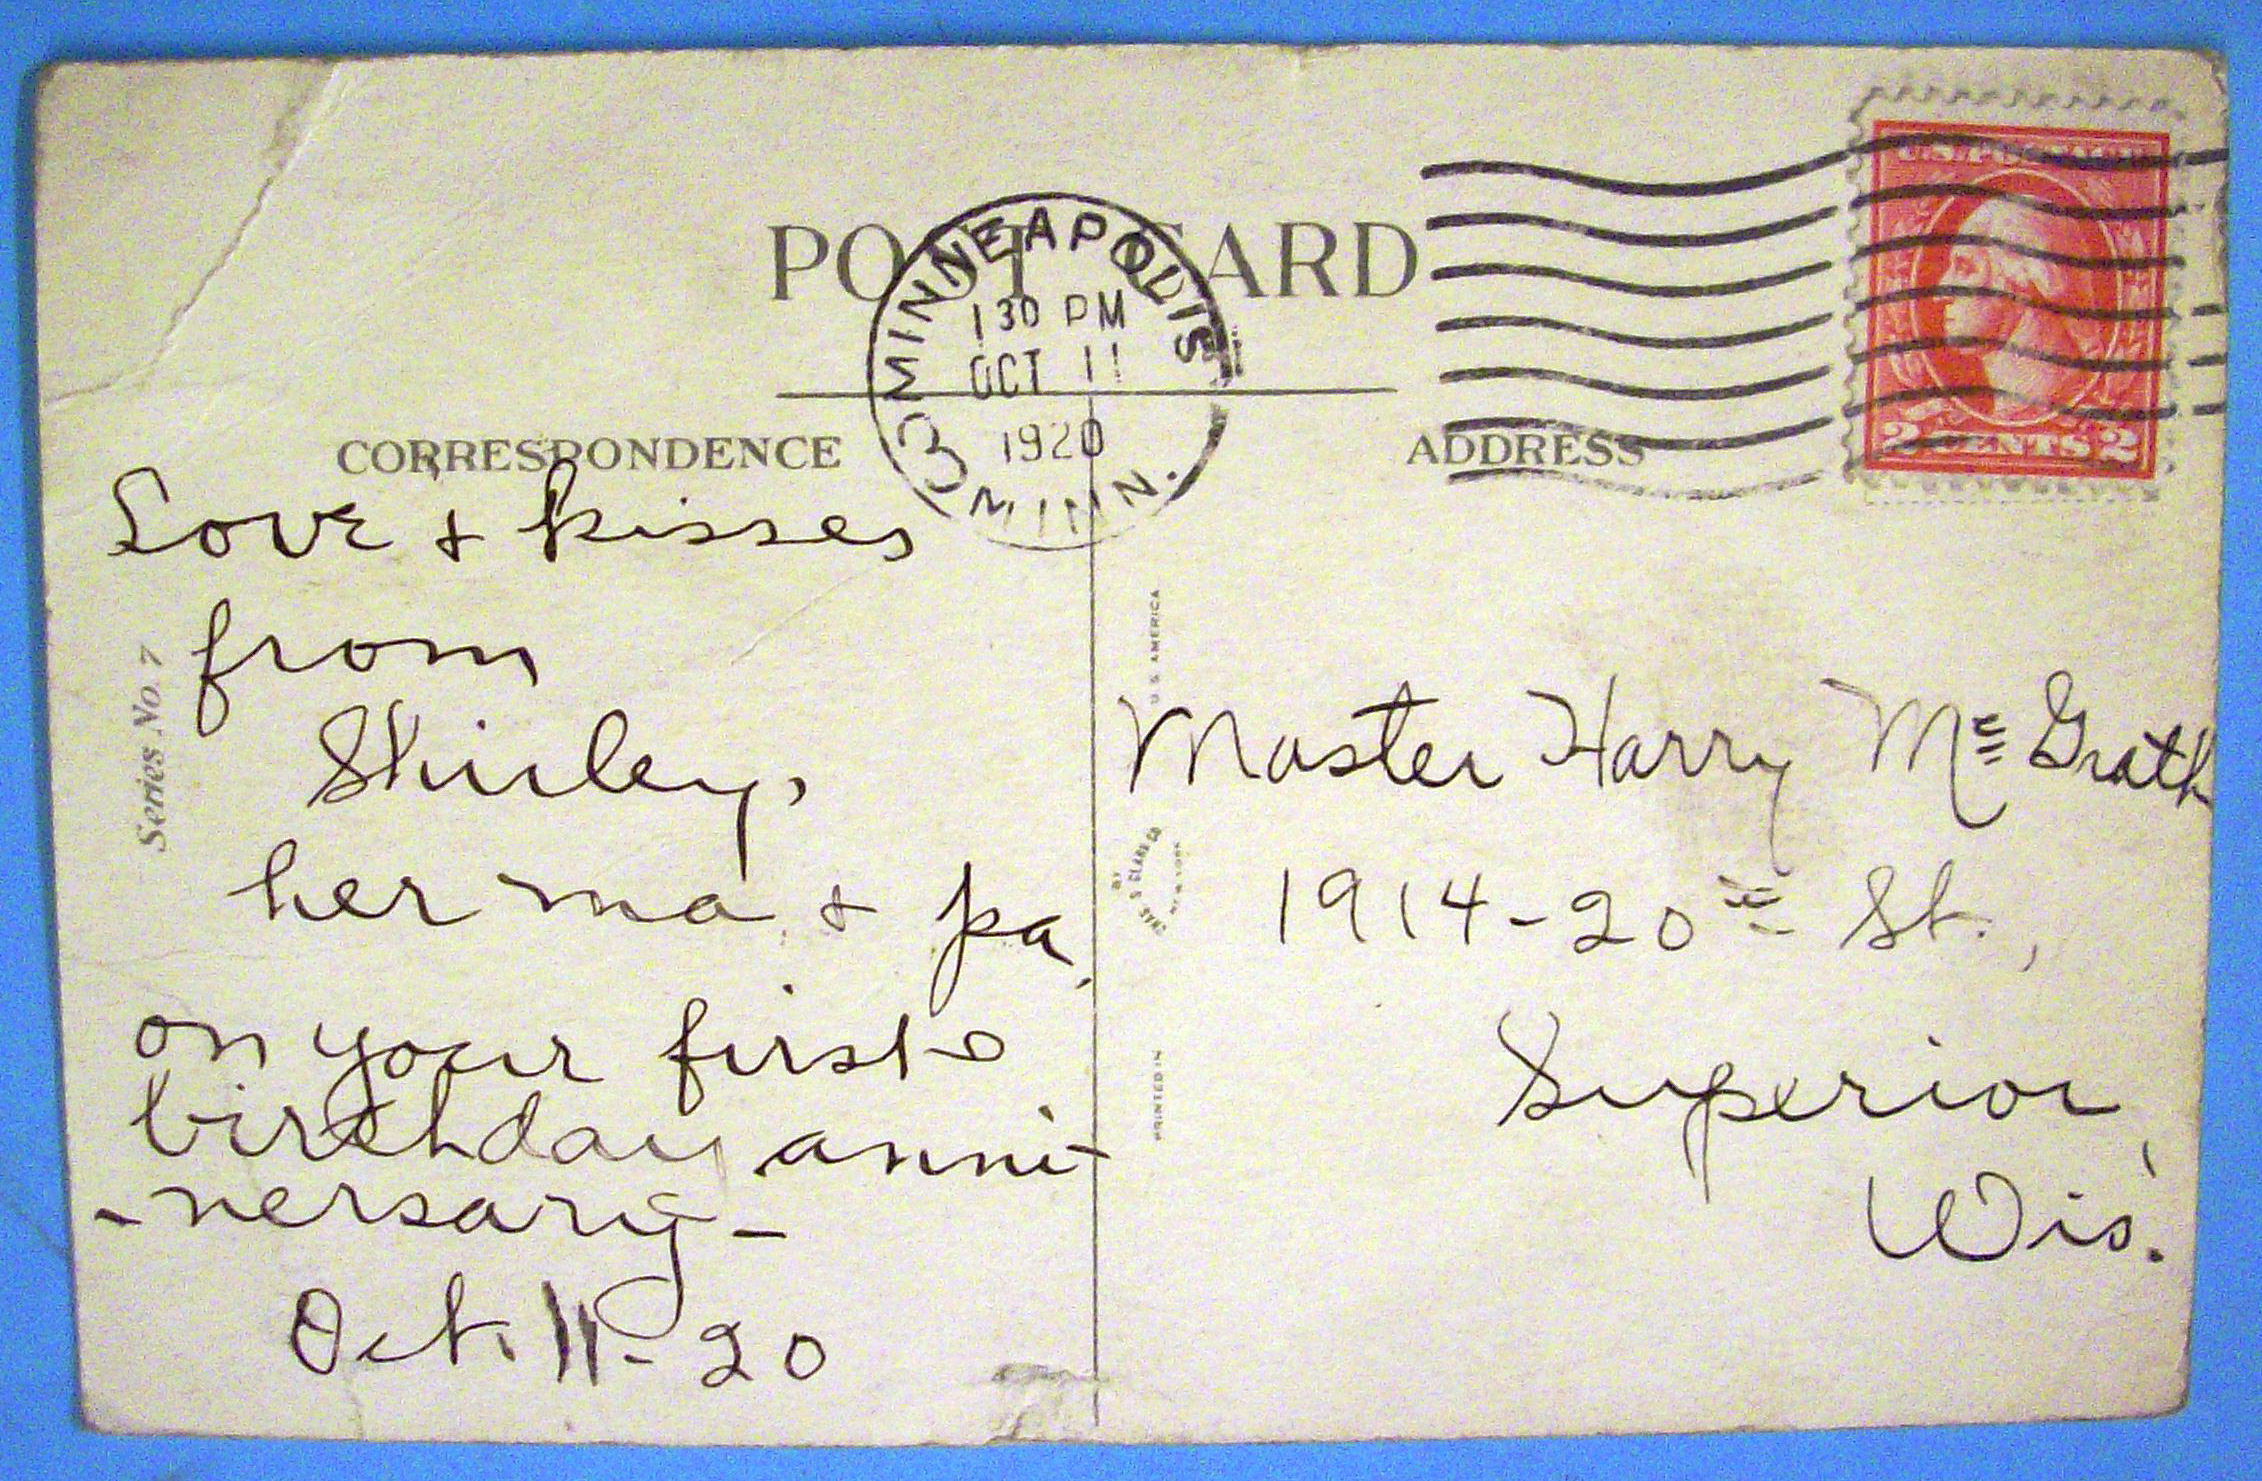 POST CARD
MINNEAPOLIS
130 PM
OCT 11
1920
3 MINN.
U.S. POSTAGE
2 CENTS 2
CORRESPONDENCE
ADDRESS
Love + kisses
from
Shirley,
her ma + pa,
on your first
birthday anni-
-versary -
Oct. 11 - 20
Series No. 7
PRINTED IN
U S AMERICA
BY
CHAS S CLARK CO
NEW YORK
Master Harry Mc Grath
1914 - 20th St.,
Superior,
Wis.